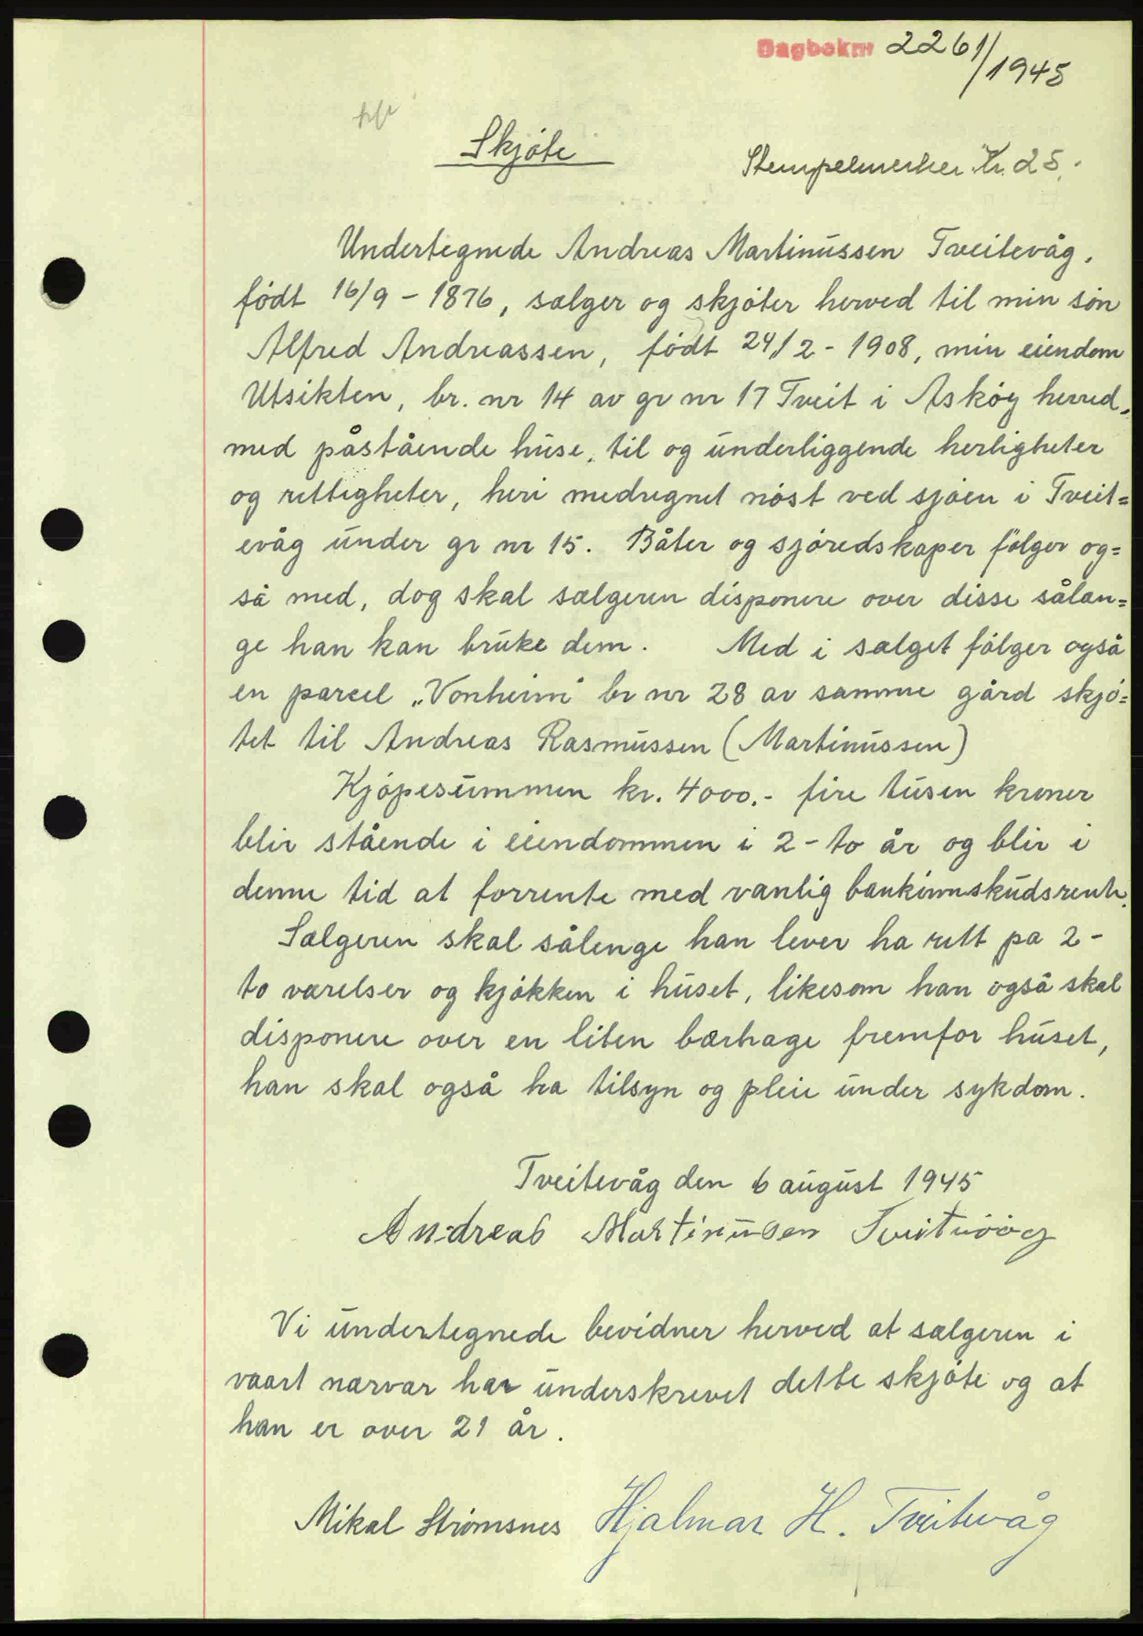 Dagboknr 2261/1945
Skjöte
Stempelmerker Kr. 25.-
Undertegnede Andreas Martinussen Tveitevåg,
födt 16/9 - 1876, sælger og skjöter herved til min sön
Alfred Andreassen, födt 24/2 - 1908, min eiendom
Utsikten, br. nr 14 av gr nr 17 Tveit i Asköy herred,
med påstående huse, til og underliggende herligheter
og rettigheter, heri medregnet nöst ved sjöen i Tveit=
evåg under gr nr 15. Båter og sjöredskaper fölger og=
så med, dog skal sælgeren disponere over disse sålan=
ge han kan bruke dem. Med i salget fölger også
en parcel „Vonheim" br nr 28 av samme gård skjö=
tet til Andreas Rasmussen (Martinussen)
Kjöpesummen kr. 4000.- fire tusen kroner
blir stående i eiendommen i 2 - to år og blir i
denne tid at forrente med vanlig bankinnskudsrente.
Sælgeren skal sålenge han lever ha rett pa 2 -
to værelser og kjökken i huset, likesom han også skal
disponere over en liten bærhage fremfor huset,
han skal også ha tilsyn og pleie under sykdom.
Tveitevåg den 6 august 1945
Andreas Martinusen Tveitevåg
Vi undertegnede bevidner herved at sælgeren i
vaart nærvær har underskrevet dette skjöte og at
han er over 21 år.
Mikal Strömsnes Hjalmar H. Tveitevåg